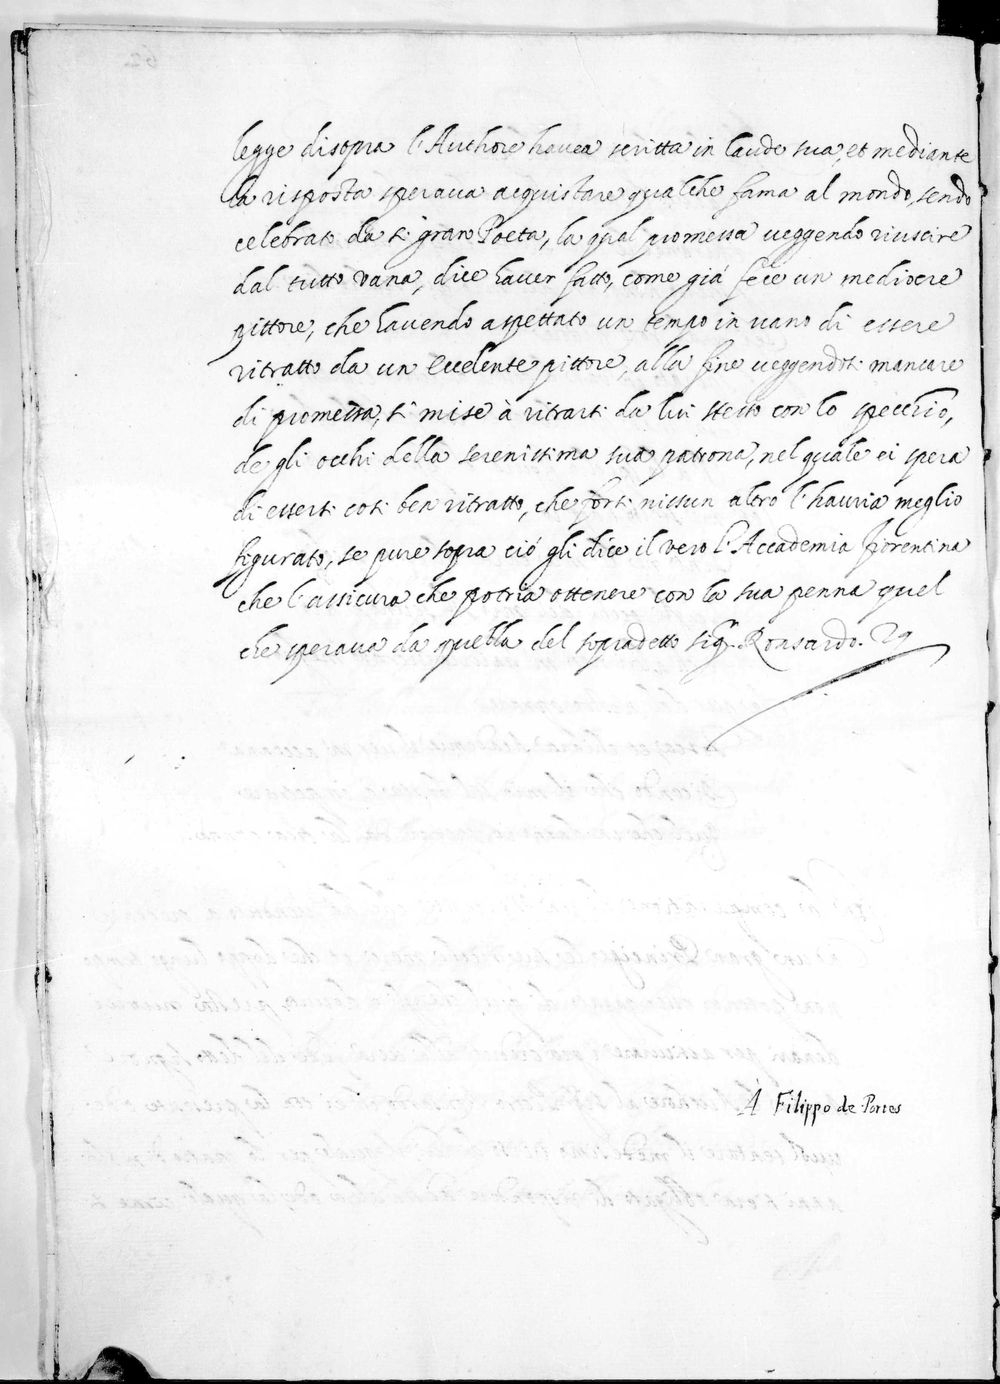 legge disopra l'Authore hauea scritta in laude sua, et mediante
la risposta speraua acquistare qualche fama al mondo, sendo
celebrato da si gran Poeta, la qual promessa ueggendo riuscire
dal tutto vana, dice hauer fatto, come giá fece un mediocre
pittore, che hauendo aspettato un tempo in uano di essere
ritratto da un eccelente pittore, alla fine ueggendosi mancare
di promessa, si mise à ritrarsi da lui stesso con lo specchio,
de gli occhi della serenissima sua patrona, nel quale ei spera
di essersi cosi ben ritratto, che forsi nissun altro l'hauria meglio
figurato, se pure sopra ció gli dice il vero l'Accademia fiorentina
che l'assicura che potria ottenere con la sua penna quel
che speraua da quella del sopradetto sig.r Ronsardo.
Á Filippo de Portes